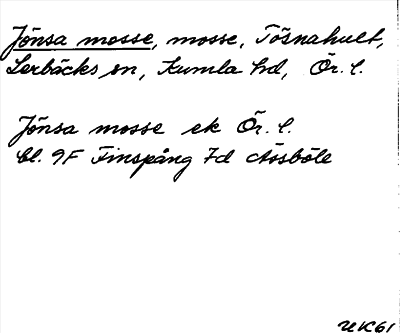 Jönsa mosse, mosse, Tösnahult,
Lerbäcks sn, Kumla hd, Ör. l.
Jönsa mosse ek Ör. l.
bl. 9F Finspång 7d Åsböle
UK61